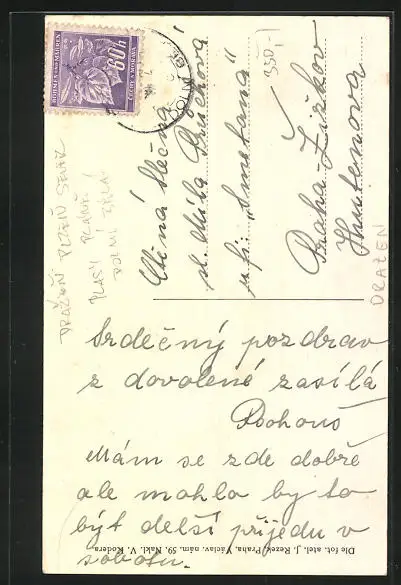 BÖHMEN UND MÄHREN
60h
ČECHY A MORAVA
DOLNÍ BĚ
350,-
Ctěná slečna
sl. Míla Bušková
u fi: „Smetana"
Praha-Žižkov
Husitenova
DRAŽEŇ PLZEŇ SEVER
PLASY PLANÁ
DOLNÍ BĚLÁ
DRAŽEŇ
Srdečný pozdrav
z dovolené zasílá
Bohouš
Mám se zde dobře
ale mohla by to
být delší přijedu v
sobotu.
Die fot. atel. J. Rezek, Praha, Václav. nám. 59. Nakl. V. Kodera